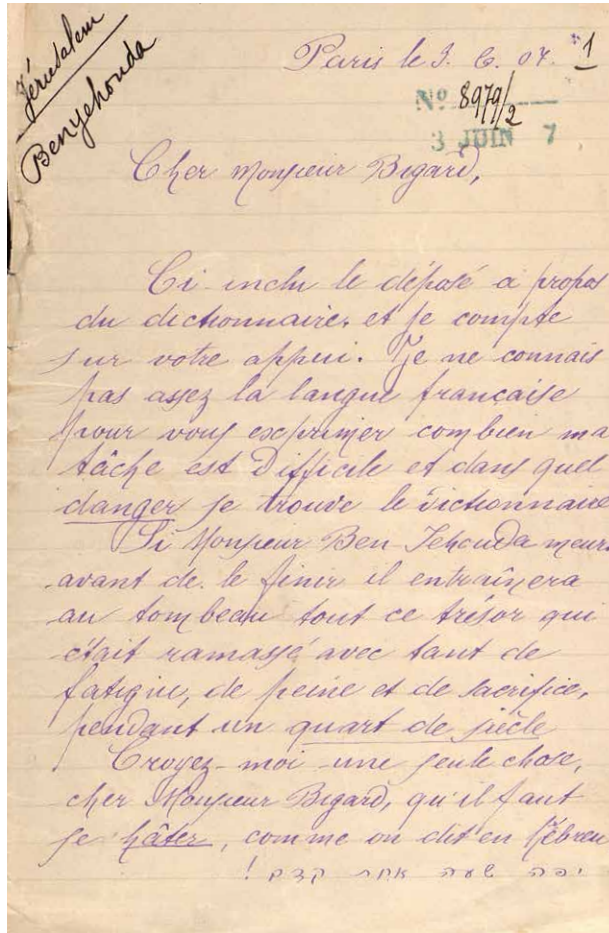 Jérusalem
Benyehouda
Paris le 3. 6. 07. 1
No 8979/2
3 JUIN 7
Cher Monsieur Bigard,
Ci inclu le déposé à propos
du dictionnaire, et je compte
sur votre appui. Je ne connais
pas assez la langue française
pour vous exprimer combien ma
tâche est difficile et dans quel
danger se trouve le dictionnaire
Si Monsieur Ben-Jehouda meurt
avant de le finir il entraînera
au tombeau tout ce trésor qui
était ramassé avec tant de
fatigue, de peine et de sacrifice,
pendant un quart de siècle
Croyez-moi une seule chose,
cher Monsieur Bigard, qu'il faut
se hâter, comme on dit en hébreu
יפה שעה אחת קדם !